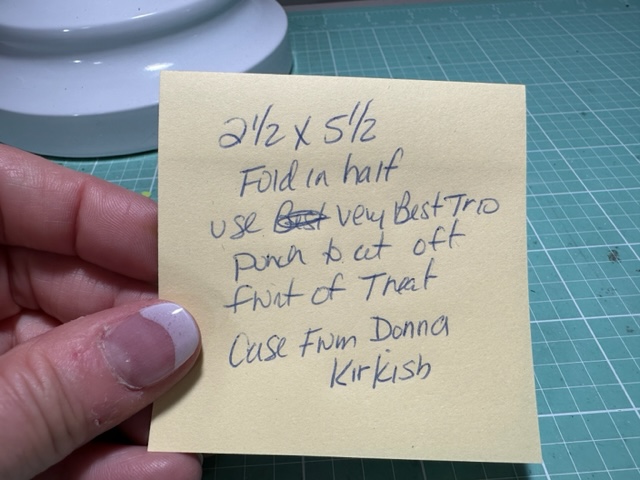 2 1/2 X 5 1/2
Fold in half
use Best very Best Trio
punch to cut off
front of Treat
Case From Donna
Kirkish